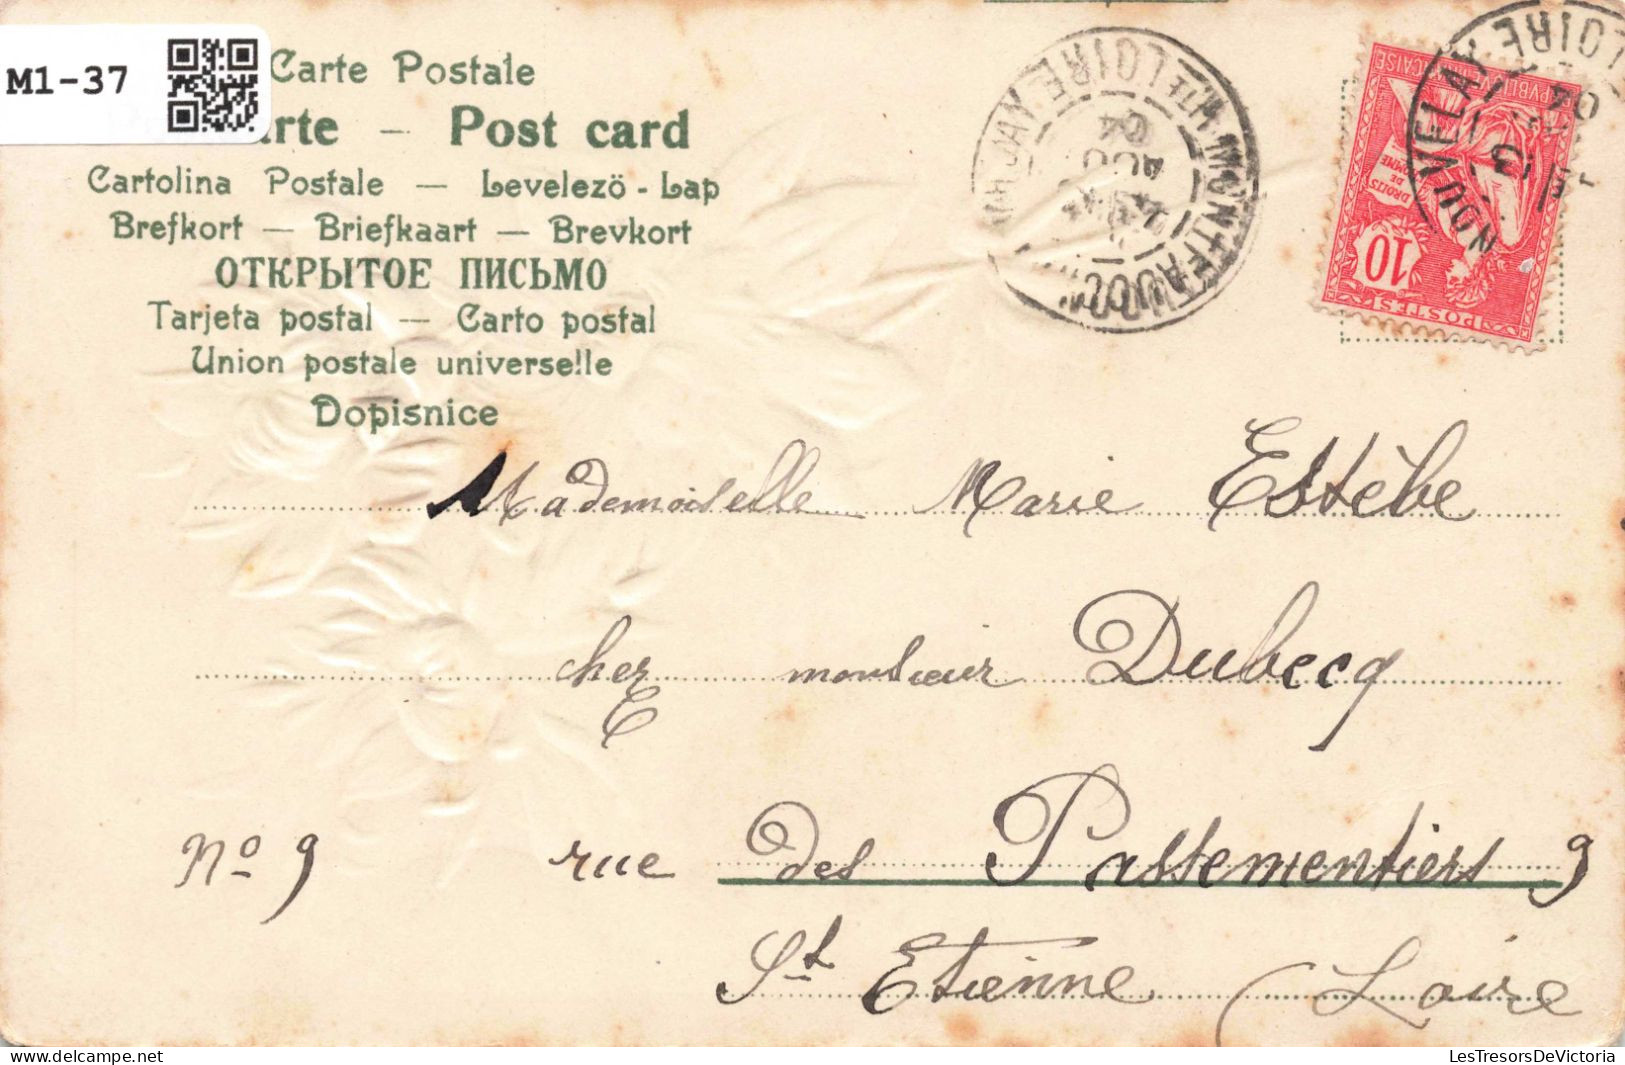 M1-37
Carte Postale
arte — Post card
Cartolina Postale — Levelezö - Lap
Brefkort — Briefkaart — Brevkort
ОТКРЫТОЕ ПИСЬМО
Tarjeta postal — Carto postal
Union postale universelle
Dopisnice
MONTFAUCON
Hte LOIRE
AOU
04
NOUVELAY
LOIRE
04
10
POSTES
DROITS
DE
L'HOMME
Mademoiselle Marie Estèbe
chez monsieur Dubecq
No 9 rue des Passementiers 9
St Etienne (Loire
LesTresorsDeVictoria